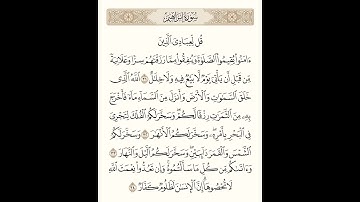 سُورَةُ إِبْرَاهِيمَ
قُل لِّعِبَادِيَ ٱلَّذِينَ
ءَامَنُوا۟ يُقِيمُوا۟ ٱلصَّلَوٰةَ وَيُنفِقُوا۟ مِمَّا رَزَقْنَٰهُمْ سِرًّا وَعَلَانِيَةً
مِّن قَبْلِ أَن يَأْتِىَ يَوْمٌ لَّا بَيْعٌ فِيهِ وَلَا خِلَٰلٌ ٣١ ٱللَّهُ ٱلَّذِى
خَلَقَ ٱلسَّمَٰوَٰتِ وَٱلْأَرْضَ وَأَنزَلَ مِنَ ٱلسَّمَآءِ مَآءً فَأَخْرَجَ
بِهِۦ مِنَ ٱلثَّمَرَٰتِ رِزْقًا لَّكُمْ وَسَخَّرَ لَكُمُ ٱلْفُلْكَ لِتَجْرِىَ
فِى ٱلْبَحْرِ بِأَمْرِهِۦ وَسَخَّرَ لَكُمُ ٱلْأَنْهَٰرَ ٣٢ وَسَخَّرَ لَكُمُ
ٱلشَّمْسَ وَٱلْقَمَرَ دَآئِبَيْنِ وَسَخَّرَ لَكُمُ ٱلَّيْلَ وَٱلنَّهَارَ ٣٣
وَءَاتَىٰكُم مِّن كُلِّ مَا سَأَلْتُمُوهُ وَإِن تَعُدُّوا۟ نِعْمَتَ ٱللَّهِ
لَا تُحْصُوهَآ إِنَّ ٱلْإِنسَٰنَ لَظَلُومٌ كَفَّارٌ ٣٤